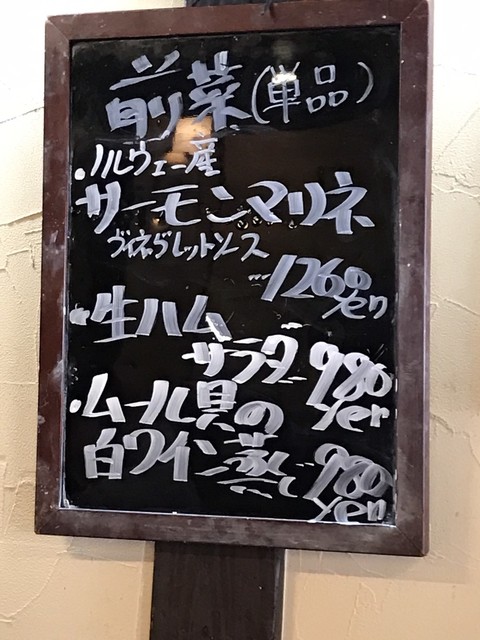 前菜(単品)
・ノルウェー産
サーモンマリネ
ヴィネグレットソース
…1260yen
・生ハム
サラダ 980yen
・ムール貝の
白ワイン蒸し 980yen